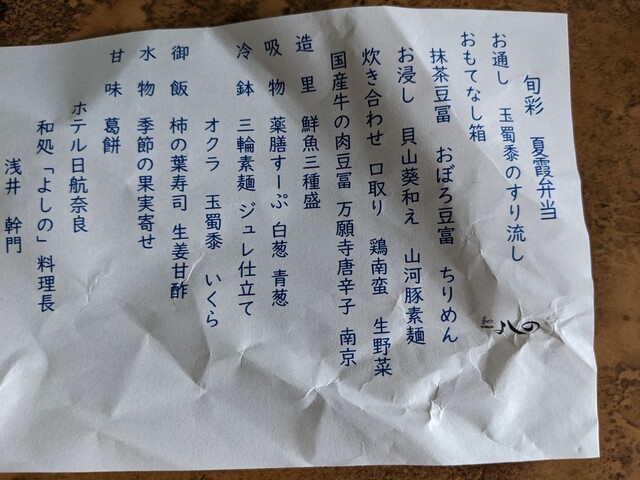 旬彩　夏霞弁当
お通し　玉蜀黍のすり流し
おもてなし箱
抹茶豆冨　おぼろ豆富　ちりめん
お浸し　貝山葵和え　山河豚素麺
炊き合わせ　口取り　鶏南蛮　生野菜
国産牛の肉豆冨　万願寺唐辛子　南京
造里　鮮魚三種盛
吸物　薬膳すーぷ　白葱　青葱
冷鉢　三輪素麺　ジュレ仕立て
オクラ　玉蜀黍　いくら
御飯　柿の葉寿司　生姜甘酢
水物　季節の果実寄せ
甘味　葛餅
ホテル日航奈良
和処「よしの」料理長
浅井　幹門